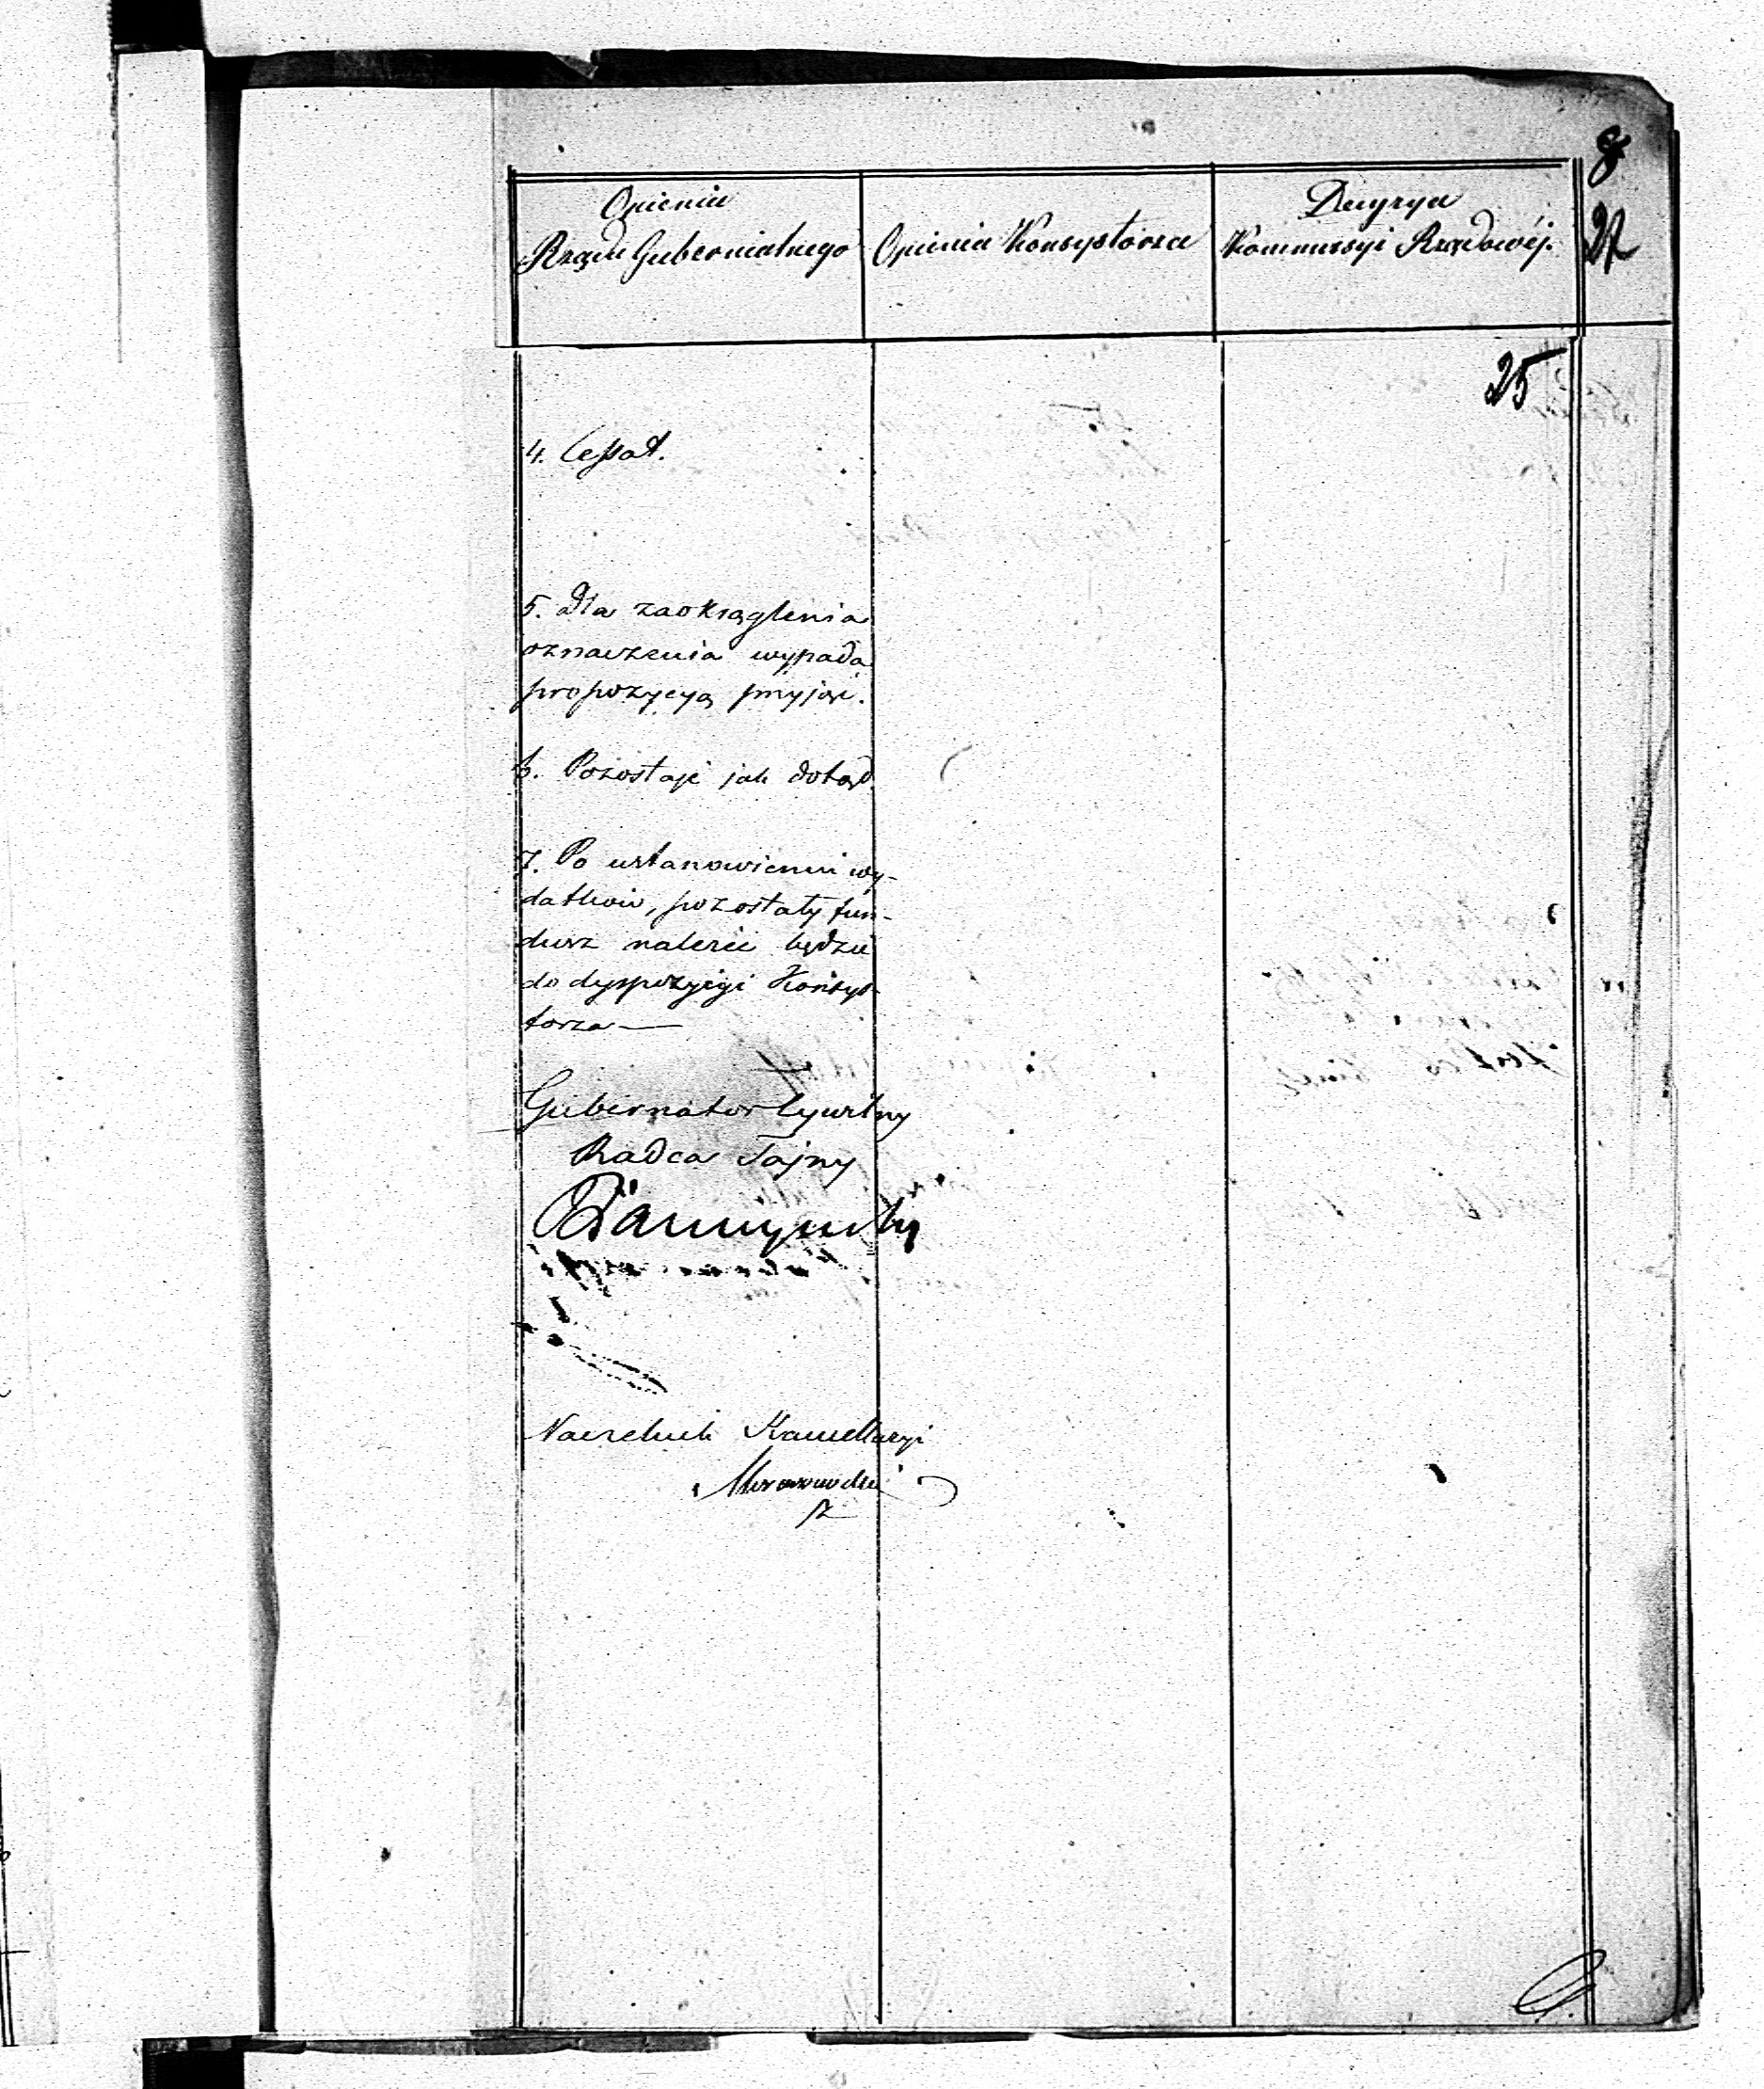 8
27
Opinia
Rządu Gubernialnego
Opinia Konsystorza
Decyzya
Kommissyi Rządowéj.
25
4. Cessat.
5. Dla zaokrąglenia
oznaczenia wypada
propozycyą przyjąć.
6. Pozostaje jak dotąd.
7. Po ustanowieniu wy-
datków, pozostały fun-
dusz należeć będzie
do dyspozycyi Konsys-
torza
Gubernator Cywilny
Radca Tajny
Naczelnik Kancellaryi